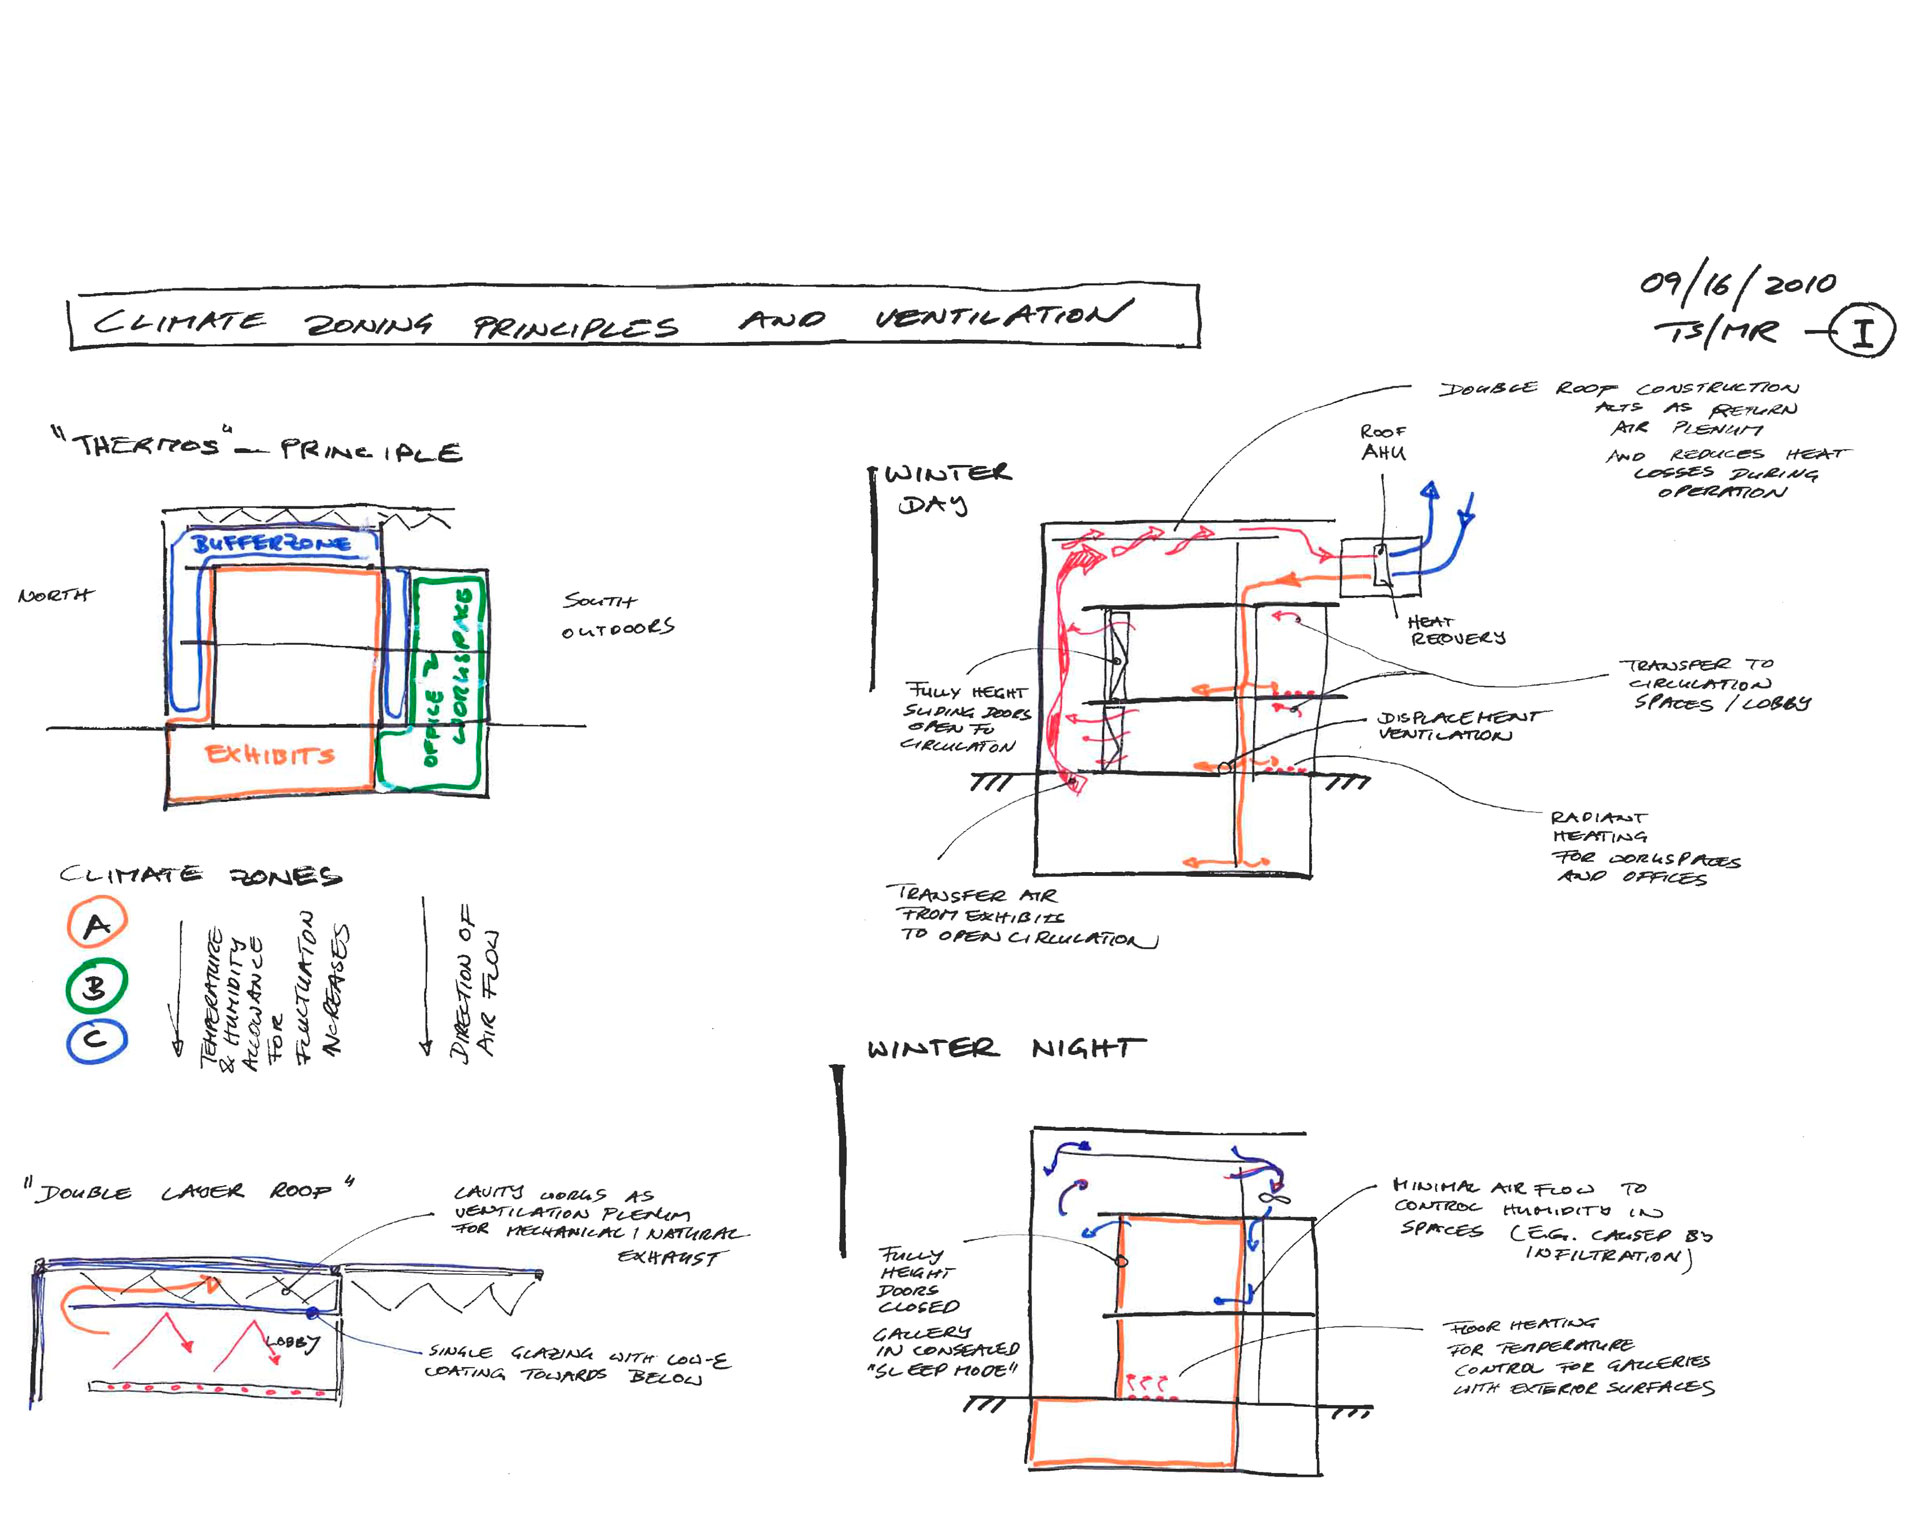 CLIMATE ZONING PRINCIPLES AND VENTILATION
09/16/2010
TS/MR - I
"THERMOS" - PRINCIPLE
BUFFERZONE
NORTH
SOUTH
OUTDOORS
OFFICE &
WORKSPACE
EXHIBITS
CLIMATE ZONES
A
B
C
TEMPERATURE
& HUMIDITY
ALLOWANCE
FOR
FLUCTUATON
INCREASES
DIRECTION OF
AIR FLOW
"DOUBLE LAYER ROOF"
CAVITY WORKS AS
VENTILATION PLENUM
FOR MECHANICAL / NATURAL
EXHAUST
LOBBY
SINGLE GLAZING WITH LOW-E
COATING TOWARDS BELOW
WINTER
DAY
DOUBLE ROOF CONSTRUCTION
ACTS AS RETURN
AIR PLENUM
AND REDUCES HEAT
LOSSES DURING
OPERATION
ROOF
AHU
HEAT
RECOVERY
FULLY HEIGHT
SLIDING DOORS
OPEN TO
CIRCULATON
TRANSFER TO
CIRCULATION
SPACES / LOBBY
DISPLACEMENT
VENTILATION
RADIANT
HEATING
FOR WORKSPACES
AND OFFICES
TRANSFER AIR
FROM EXHIBITS
TO OPEN CIRCULATION
WINTER NIGHT
MINIMAL AIR FLOW TO
CONTROL HUMIDITY IN
SPACES (E.G. CAUSED BY
INFILTRATION)
FULLY
HEIGHT
DOORS
CLOSED
GALLERY
IN CONSEALED
"SLEEP MODE"
FLOOR HEATING
FOR TEMPERATURE
CONTROL FOR GALLERIES
WITH EXTERIOR SURFACES